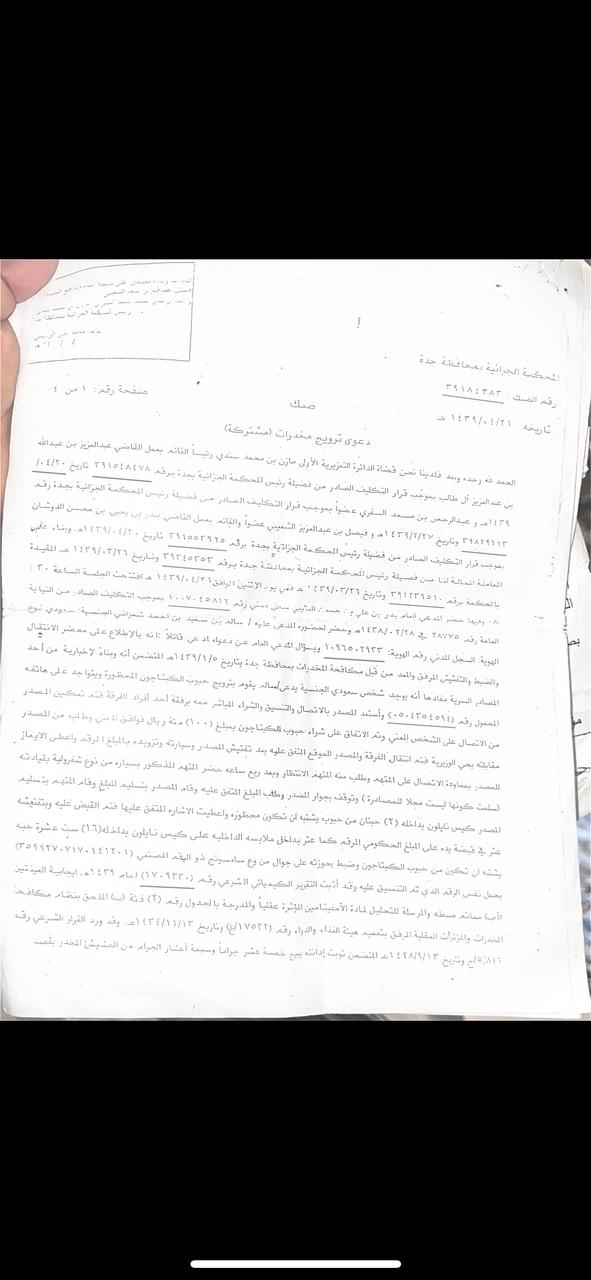 المحكمة الجزائية بمحافظة جدة
رقم الصك : ٣٩١٨٤٣٨٣
تاريخه ١٤٣٩/٠٤/٢١ هـ
صفحة رقم: ١ من ٤
صك
دعوى ترويج مخدرات (مشتركة)
الحمد لله وحده وبعد فلدينا نحن قضاة الدائرة التعزيرية الأولى مازن بن محمد سندي رئيساً القائم بعمل القاضي عبدالعزيز بن عبدالله
بن عبدالعزيز آل طالب بموجب قرار التكليف الصادر من فضيلة رئيس المحكمة الجزائية بجدة برقم ٣٩١٥٤٨٤٧٨ تاريخ ٠٤/٢٠/
١٤٣٩هـ و عبدالرحمن بن مسعد السفري عضواً بموجب قرار التكليف الصادر من فضيلة رئيس المحكمة الجزائية بجدة رقم
٣٩٨٢٩٦١٣ وتاريخ ١٤٣٩/٢/٢٧هـ و فيصل بن عبدالعزيز الشعيبي عضواً والقائم بعمل القاضي بندر بن يحيى بن محسن الدوشان
بموجب قرار التكليف الصادر من فضيلة رئيس المحكمة الجزائية بجدة برقم ٣٩١٥٥٣٩٢٥ تاريخ ١٤٣٩/٠٤/٢٠هـ وبناء على
المعاملة المحالة لنا من فضيلة رئيس المحكمة الجزائية بمحافظة جدة برقم ٣٩٢٤٥٣٥٣ وتاريخ ١٤٣٩/٠٣/٢٦ هـ المقيدة
بالمحكمة برقم ٣٩١٢٣٩٥١٠ وتاريخ ١٤٣٩/٠٣/٢٦هـ ففي يوم الإثنين الموافق ١٤٣٩/٠٤/٢١ هـ افتتحت الجلسة الساعة ٣٠ :
٠٨ وفيها حضر المدعي العام بدر بن علي بن العتيبي سجل مدني رقم ١٠٠٧٠٤٥٨١٦ بموجب التكليف الصادر من النيابة
العامة رقم ٢٨٧٧٥ في ١٤٣٨/٠٢/٢٨هـ وحضر لحضوره المدعى عليه / سالم بن سعيد بن احمد شمراني الجنسية: سعودي نوع
الهوية: السجل المدني رقم الهوية: ١٠٩٦٥٠٢٩٣٣ وبسؤال المدعي العام عن دعواه ادعى قائلاً :انه بالإطلاع على محضر الانتقال
والضبط والتفتيش المرفق والمعد من قبل مكافحة المخدرات بمحافظة جدة بتاريخ ١٤٣٩/١/٥هـ المتضمن أنه وبناءً لإخبارية من أحد
المصادر السرية مفادها أنه يوجد شخص سعودي الجنسية يدعى/سالم يقوم بترويج حبوب الكبتاجون المحظورة ويتواجد على هاتفه
المحمول رقم (٠٥٠٤٣٥٤٥٩٤) وأستعد المصدر بالاتصال والتنسيق والشراء المباشر معه برفقة أحد أفراد الفرقة فتم تمكين المصدر
من الاتصال على الشخص المعني وتم الاتفاق على شراء حبوب الكبتاجون بمبلغ (١٠٠) مئة ريال فوافق المعني وطلب من المصدر
مقابلته بحي الوزيرية فتم انتقال الفرقة والمصدر للموقع المتفق عليه بعد تفتيش المصدر وسيارته وتزويده بالمبلغ المرقم واعطى الايعاز
للمصدر بمعاودة الاتصال على المتهم وطلب منه المتهم الانتظار وبعد ربع ساعه حضر المتهم المذكور بسياره من نوع شفرولية بقيادته
(سلمت كونها ليست محلا للمصادرة) وتوقف بجوار المصدر وطلب المبلغ المتفق عليه وقام المصدر بتسليم المبلغ وقام المتهم بتسليم
المصدر كيس نايلون بداخله (٢) حبتان من حبوب يشتبه ان تكون محظوره واعطيت الاشاره المتفق عليها فتم القبض عليه وبتفتيشه
عثر في قبضة يده على المبلغ الحكومي المرقم كما عثر بداخل ملابسه الداخليه على كيس نايلون بداخله(١٦) ست عشرة حبه
يشتبه ان تكون من حبوب الكبتاجون وضبط بحوزته على جوال من نوع سامسونج ذو الرقم المصنعي (٣٥٩٩٢٧٠٧١٧٠١٤١٢٠١)
يحمل نفس الرقم الذي تم التنسيق عليه وقد أثبت التقرير الكيميائي الشرعي رقم (١٧٠٩٣٣٠) لعام ١٤٣٩هـ ايجابية العينتين
(أب) مماتم ضبطه والمرسلة للتحليل لمادة الأمفيتامين المؤثرة عقلياً والمدرجة بالجدول رقم (٢) فئة (ب) الملحق بنظام مكافحة
المخدرات والمؤثرات العقلية المرفق بتعميم هيئة الغذاء والدواء رقم (١٧٥٣٢/غ) وتاريخ ١٤٣٤/١١/١٣هـ. وقد ورد القرار الشرعي رقم
٥/٨١٦/ج وتاريخ ١٤٢٨/٩/١٣هـ المتضمن ثبوت إدانته ببيع خمسة عشر جراماً وسبعة أعشار الجرام من الحشيش المخدر بقصد